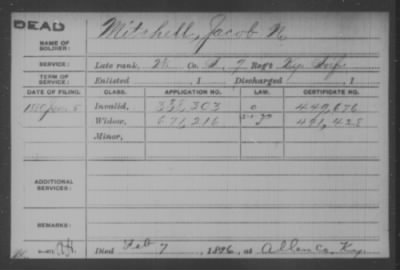 DEAD
Mitchell, Jacob N.
NAME OF SOLDIER:
SERVICE: Late rank, Co. A, 9 Reg't Ky. Inf.
TERM OF SERVICE: Enlisted , 1 Discharged , 1
DATE OF FILING. CLASS. APPLICATION NO. LAW. CERTIFICATE NO.
1880 Invalid, 338,303 449,676
Widow, 671,216 491,428
Minor,
ADDITIONAL SERVICES:
REMARKS:
Died Feb 7, 1896, at Allen Co. Ky.